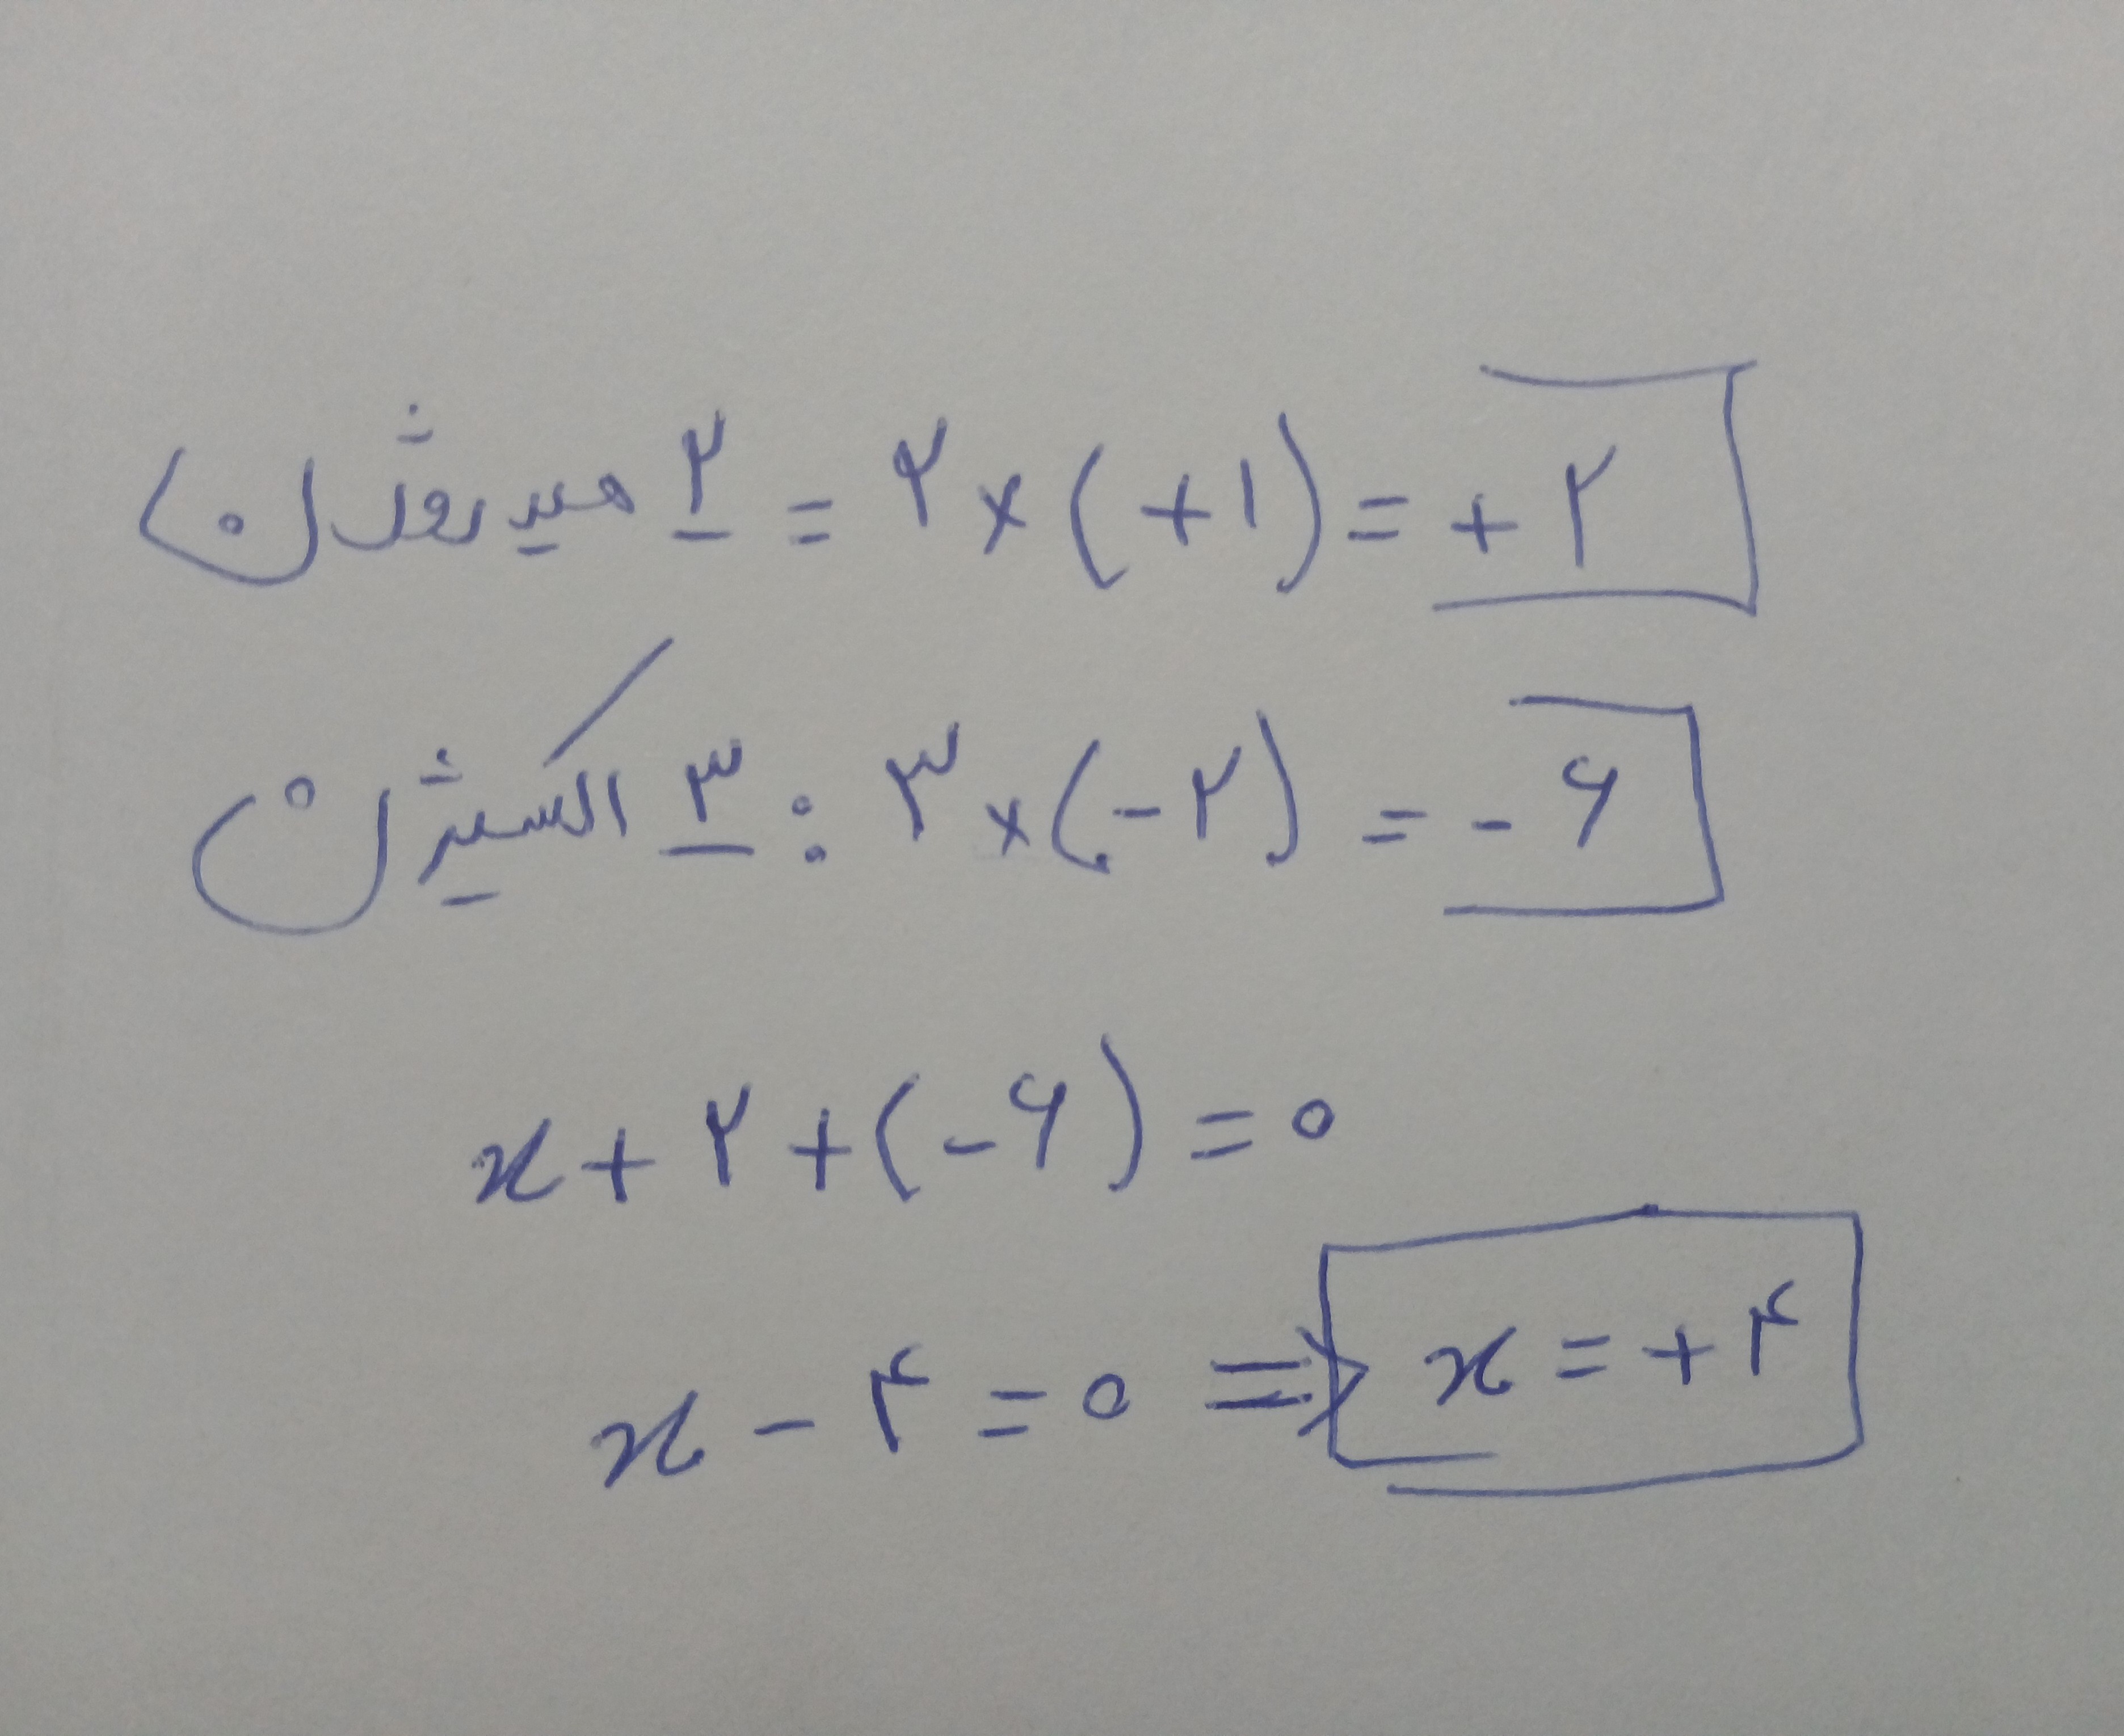 ۲ هیدروژن = ۲ × (+۱) = +۲
۳ اکسیژن : ۳ × (-۲) = -۶
x + ۲ + (-۶) = ۰
x - ۴ = ۰ ⇒ x = +۴